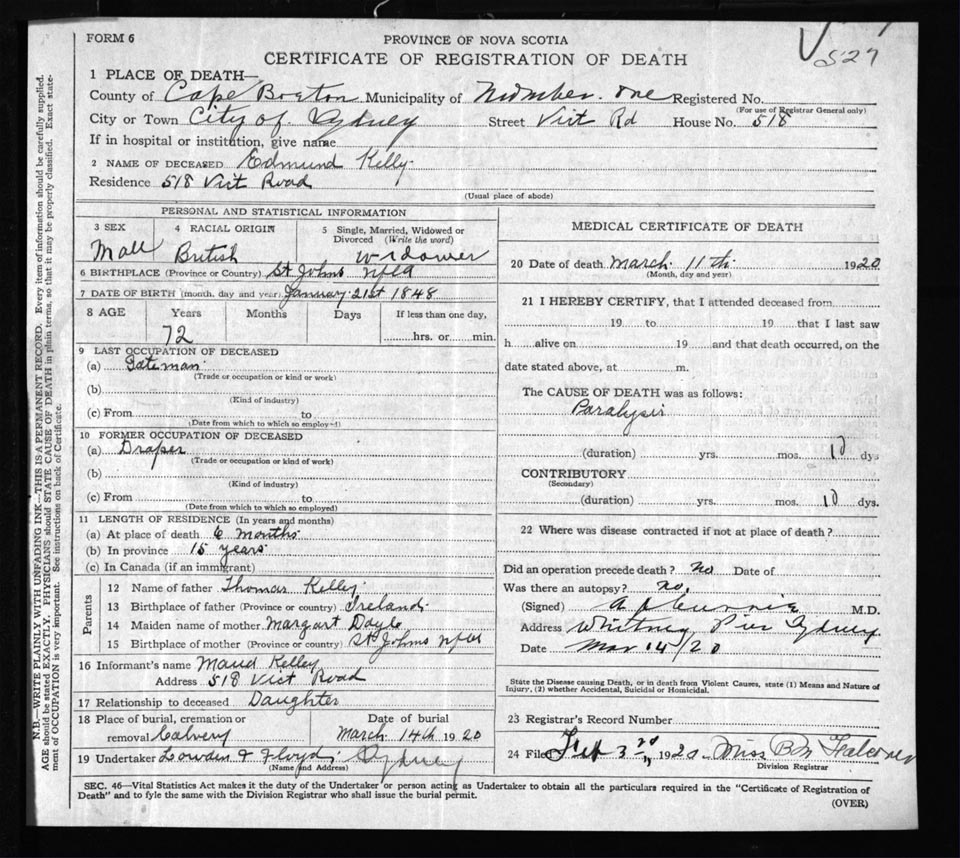 FORM 6
PROVINCE OF NOVA SCOTIA
527
CERTIFICATE OF REGISTRATION OF DEATH
1 PLACE OF DEATH—
County of Cape Breton Municipality of Number one Registered No.
(For use of Registrar General only)
City or Town City of Sydney Street Vict Rd House No. 518
If in hospital or institution, give name
2 NAME OF DECEASED Edmund Kelly
Residence 518 Vict Road
(Usual place of abode)
PERSONAL AND STATISTICAL INFORMATION
3 SEX 4 RACIAL ORIGIN 5 Single, Married, Widowed or Divorced (Write the word)
Male British widower
6 BIRTHPLACE (Province or Country) St Johns Nfld
7 DATE OF BIRTH (month, day and year) January 21st 1848
8 AGE Years Months Days If less than one day,
72 hrs. or min.
9 LAST OCCUPATION OF DECEASED
(a) Gateman
(Trade or occupation or kind or work)
(b)
(Kind of industry)
(c) From to
(Date from which to which so employed)
10 FORMER OCCUPATION OF DECEASED
(a) Draper
(Trade or occupation or kind of work)
(b)
(Kind of industry)
(c) From to
(Date from which to which so employed)
11 LENGTH OF RESIDENCE (In years and months)
(a) At place of death 6 months
(b) In province 15 years
(c) In Canada (if an immigrant)
Parents
12 Name of father Thomas Kelley
13 Birthplace of father (Province or country) Ireland
14 Maiden name of mother Margart Doyle
15 Birthplace of mother (Province or country) St Johns Nfld
16 Informant's name Maud Kelley
Address 518 Vict Road
17 Relationship to deceased Daughter
18 Place of burial, cremation or removal Calvery Date of burial March 14th 1920
19 Undertaker Lowden & Floyd Sydney
(Name and Address)
MEDICAL CERTIFICATE OF DEATH
20 Date of death March 11th 1920
(Month, day and year)
21 I HEREBY CERTIFY, that I attended deceased from
19 to 19 that I last saw
h alive on 19 and that death occurred, on the
date stated above, at m.
The CAUSE OF DEATH was as follows:
Paralysis
(duration) yrs. mos. 10 dys
CONTRIBUTORY
(Secondary)
(duration) yrs. mos. 10 dys.
22 Where was disease contracted if not at place of death?
Did an operation precede death? No Date of
Was there an autopsy? no.
(Signed) M.D.
Address Whitney Pier Sydney
Date Mar 14/20
State the Disease causing Death, or in death from Violent Causes, state (1) Means and Nature of
Injury, (2) whether Accidental, Suicidal or Homicidal.
23 Registrar's Record Number
24 Filed 3rd 1920 Miss
Division Registrar
SEC. 46—Vital Statistics Act makes it the duty of the Undertaker or person acting as Undertaker to obtain all the particulars required in the "Certificate of Registration of
Death" and to fyle the same with the Division Registrar who shall issue the burial permit.
(OVER)
N.B.—WRITE PLAINLY WITH UNFADING INK—THIS IS A PERMANENT RECORD. Every item of information should be carefully supplied.
AGE should be stated EXACTLY. PHYSICIANS should STATE CAUSE OF DEATH in plain terms, so that it may be properly classified. Exact state-
ment of OCCUPATION is very important. See instructions on back of Certificate.